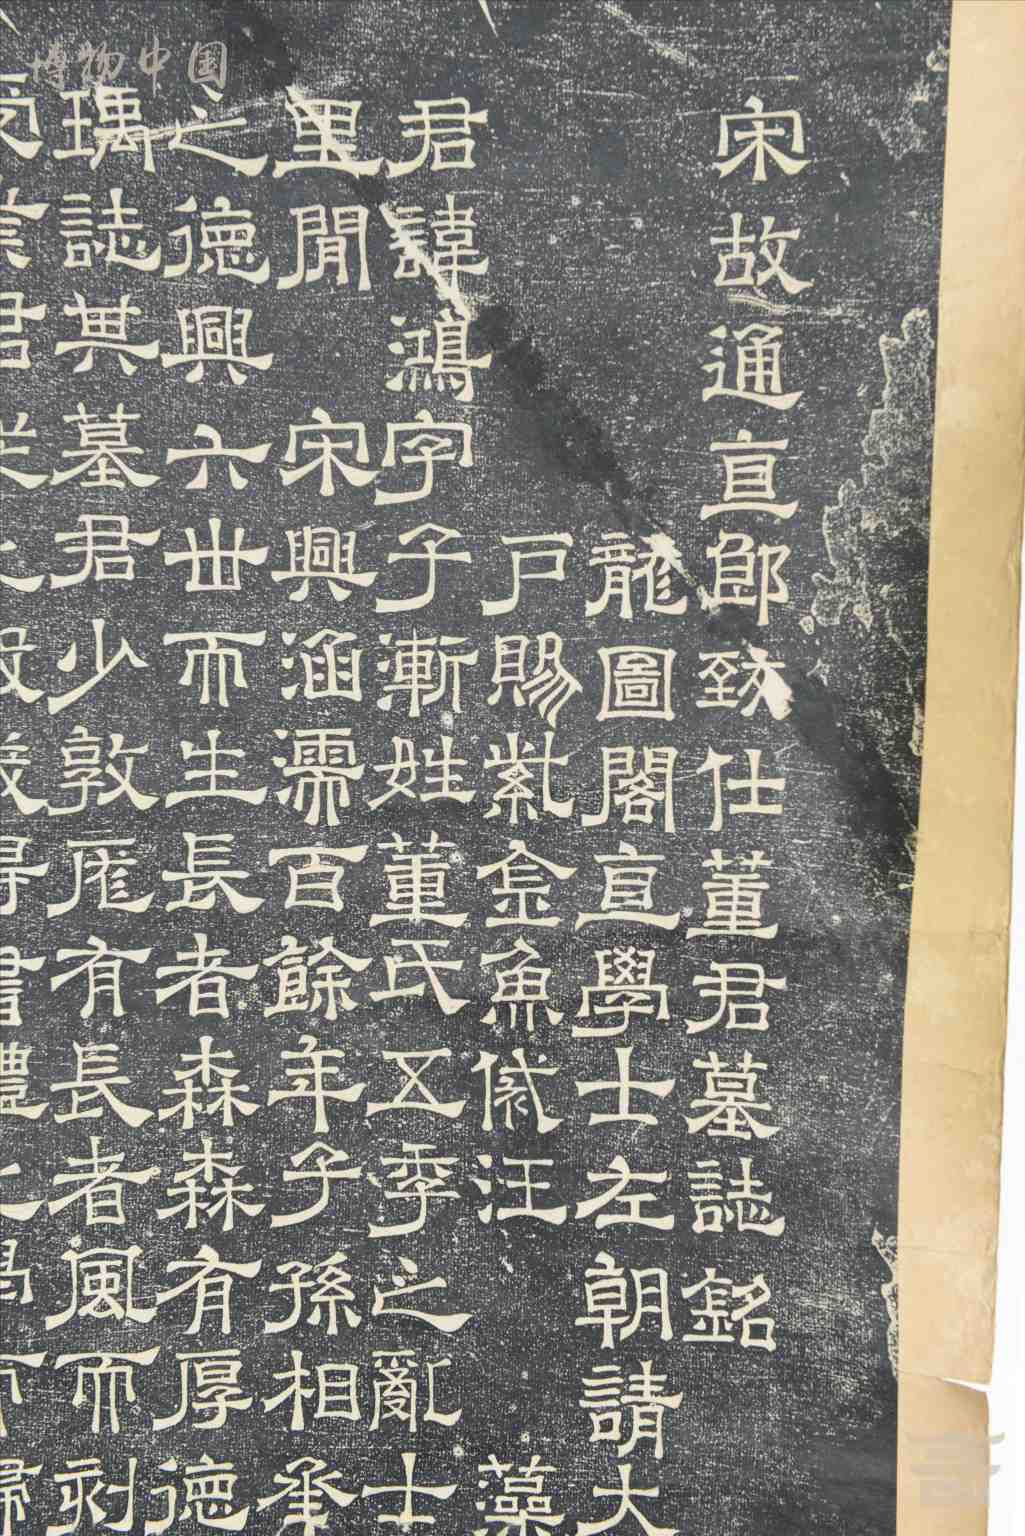 博物中国
宋故通直郎致仕董君墓誌銘
龍圖閣直學士左朝請大
戶賜紫金魚袋汪 藻
君諱鴻字子漸姓董氏五季之亂士
里閒 宋興涵濡百餘年子孫相承
之德興六世而生長者森森有厚德
瑀誌其墓君少敦厖有長者風而